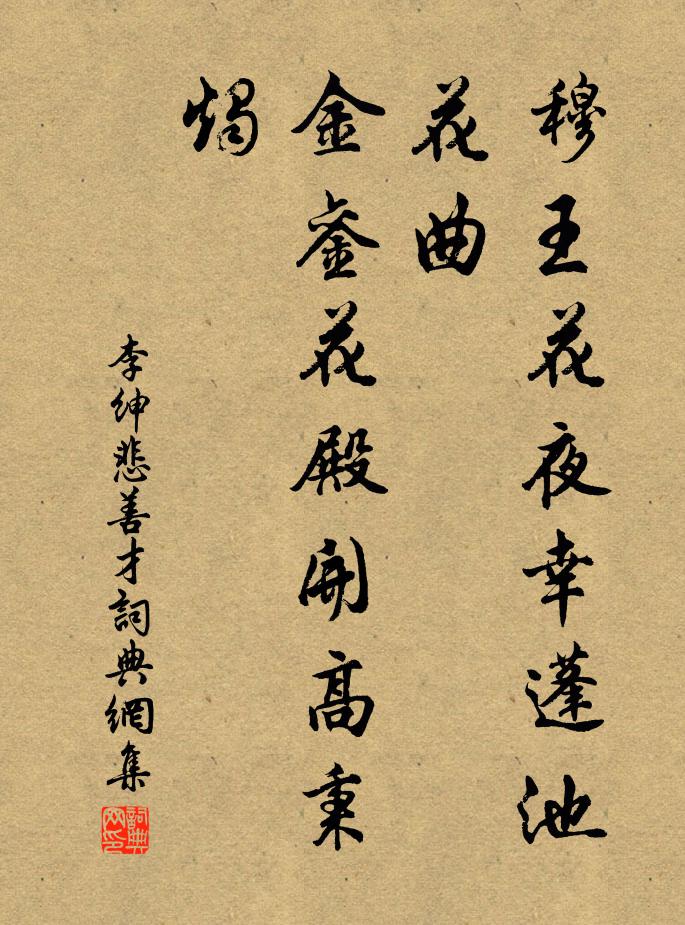 穆王花夜幸蓬池
花曲
金銮花殿開高秉
燭
李紳悲善才詞典網集
詞典网印